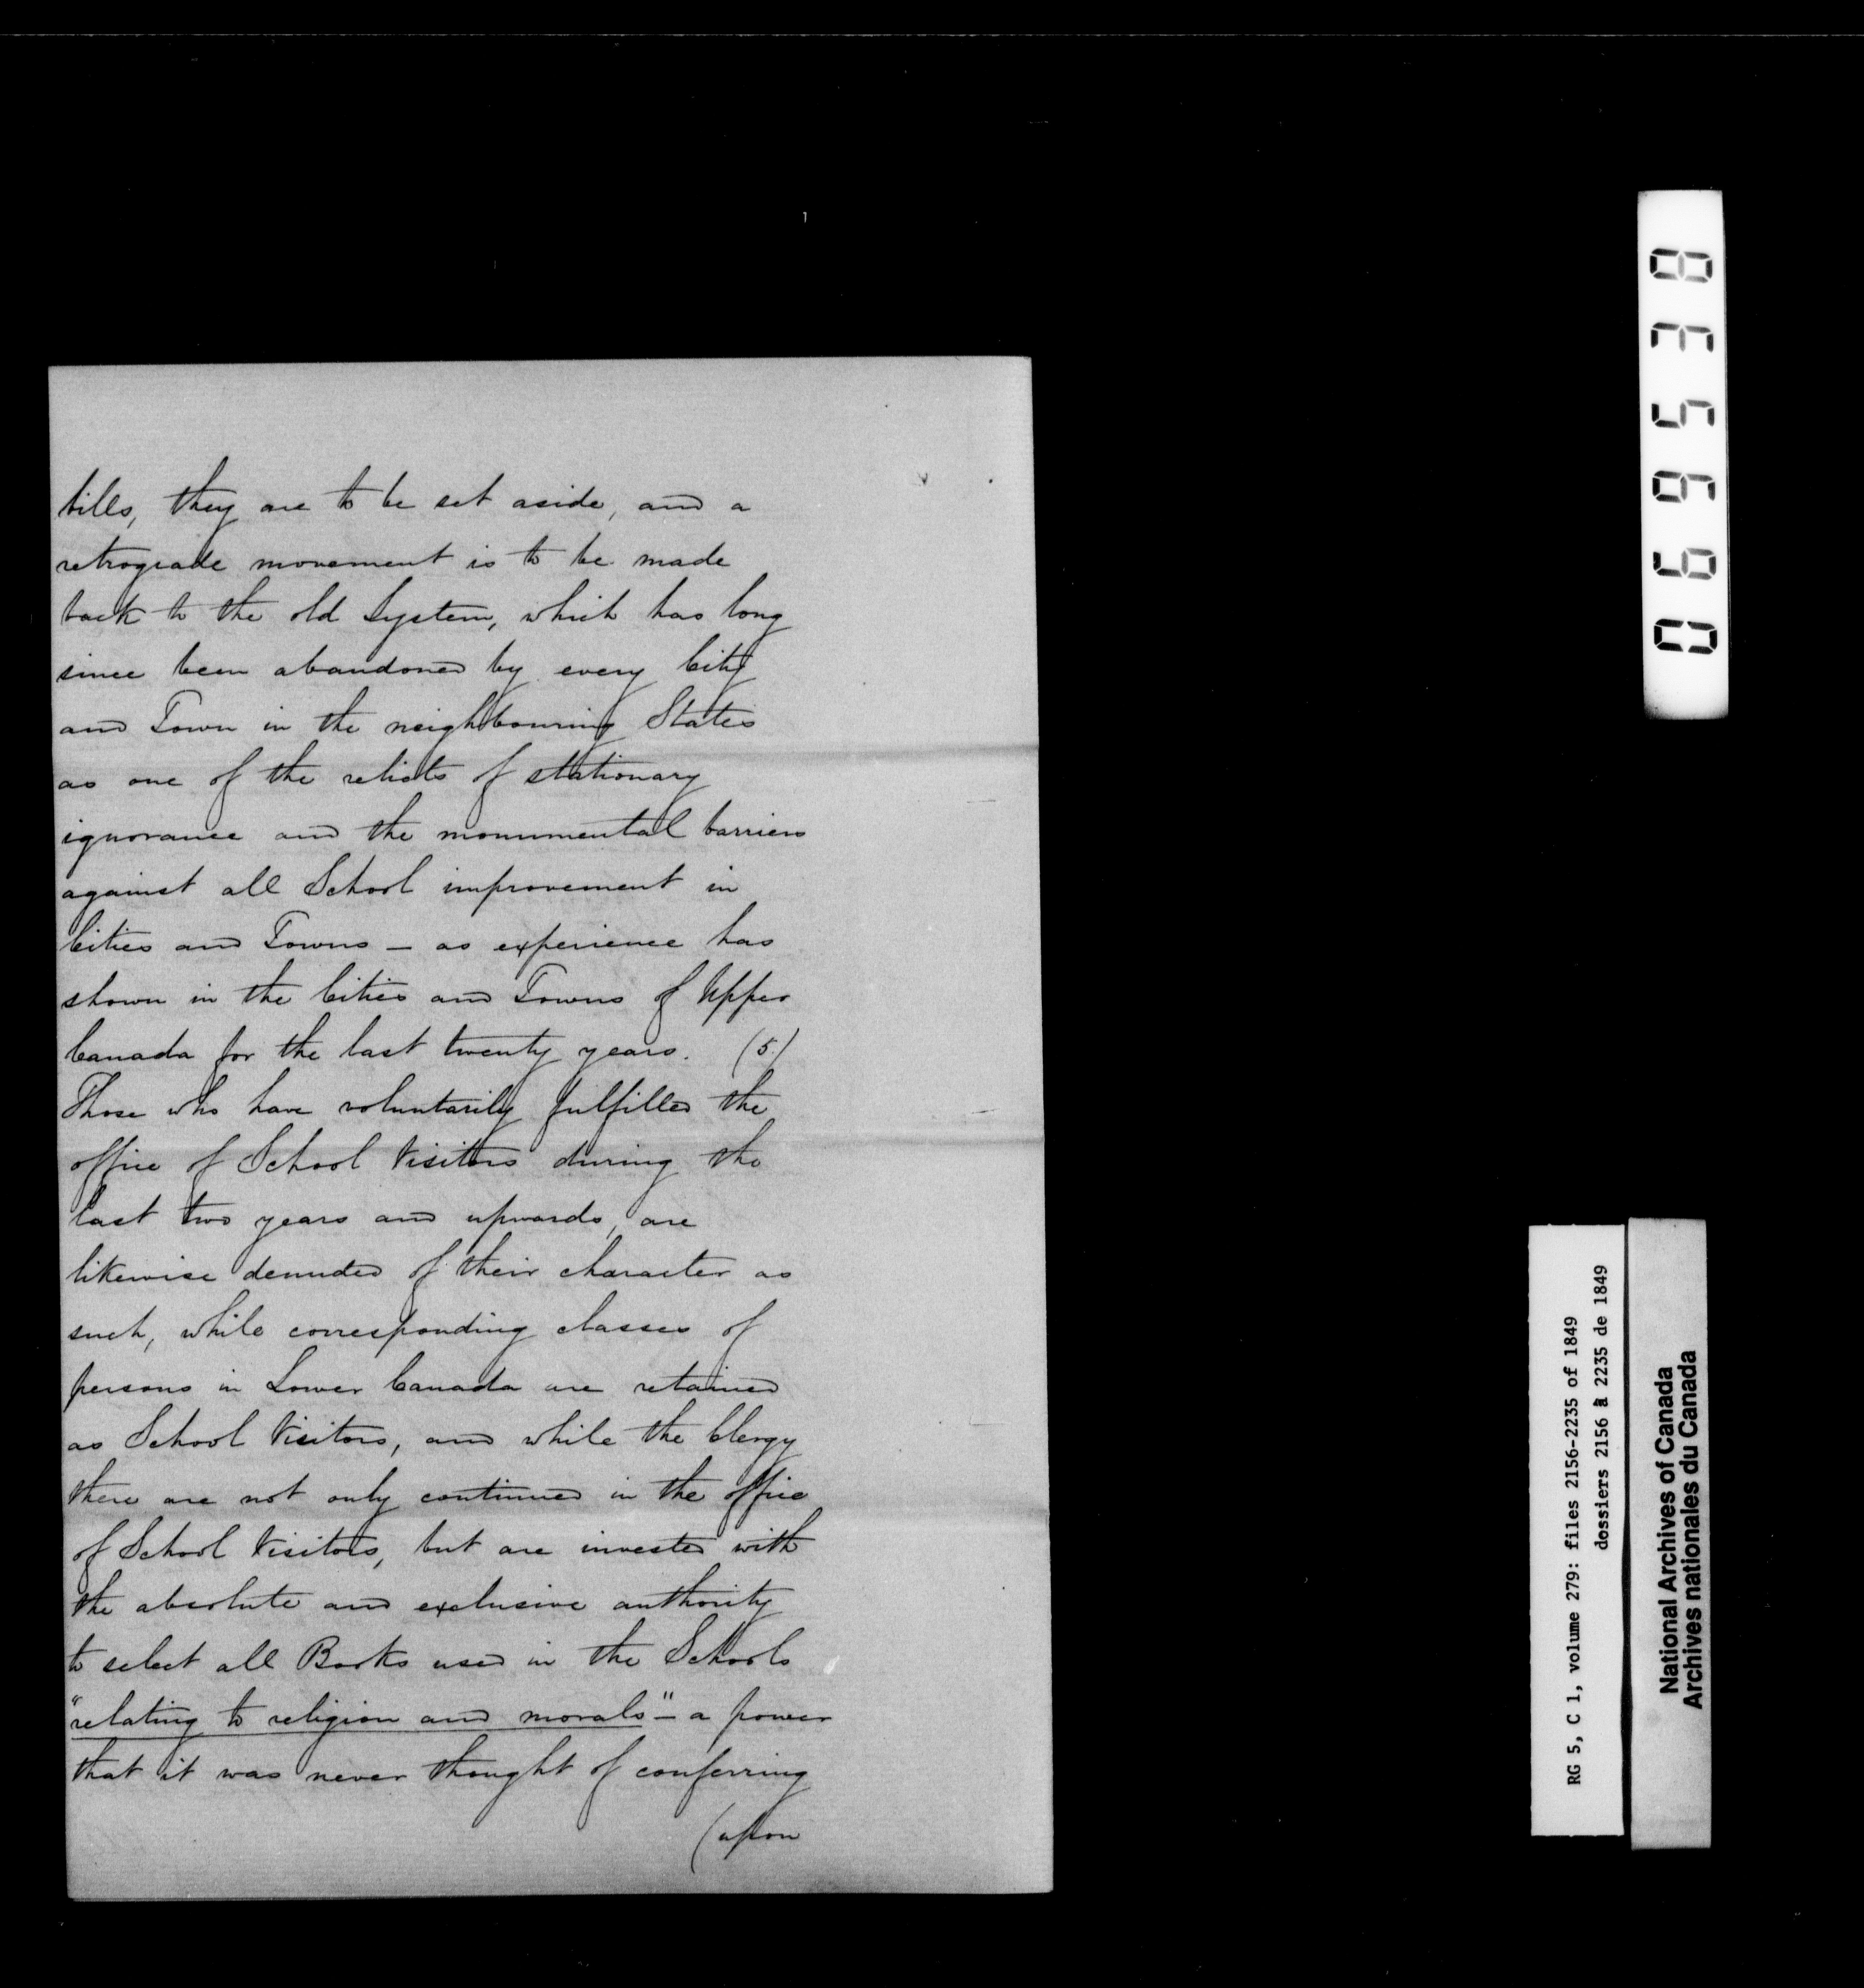 bills, they are to be set aside, and a
retrograde movement is to be made
back to the old System, which has long
since been abandoned by every City
and Town in the neighbouring States
as one of the relicts of stationary
ignorance and the monumental barriers
against all School improvement in
Cities and Towns — as experience has
shown in the Cities and Towns of Upper
Canada for the last twenty years. (5.)
Those who have voluntarily fulfilled the
office of School Visitors during the
last two years and upwards, are
likewise denuded of their character as
such, while corresponding classes of
persons in Lower Canada are retained
as School Visitors, and while the Clergy
there are not only continued in the office
of School Visitors, but are invested with
the absolute and exclusive authority
to select all Books used in the Schools
"relating to religion and morals" — a power
that it was never thought of conferring
(upon
065638
RG 5, C 1, volume 279: files 2156-2235 of 1849
dossiers 2156 à 2235 de 1849
National Archives of Canada
Archives nationales du Canada